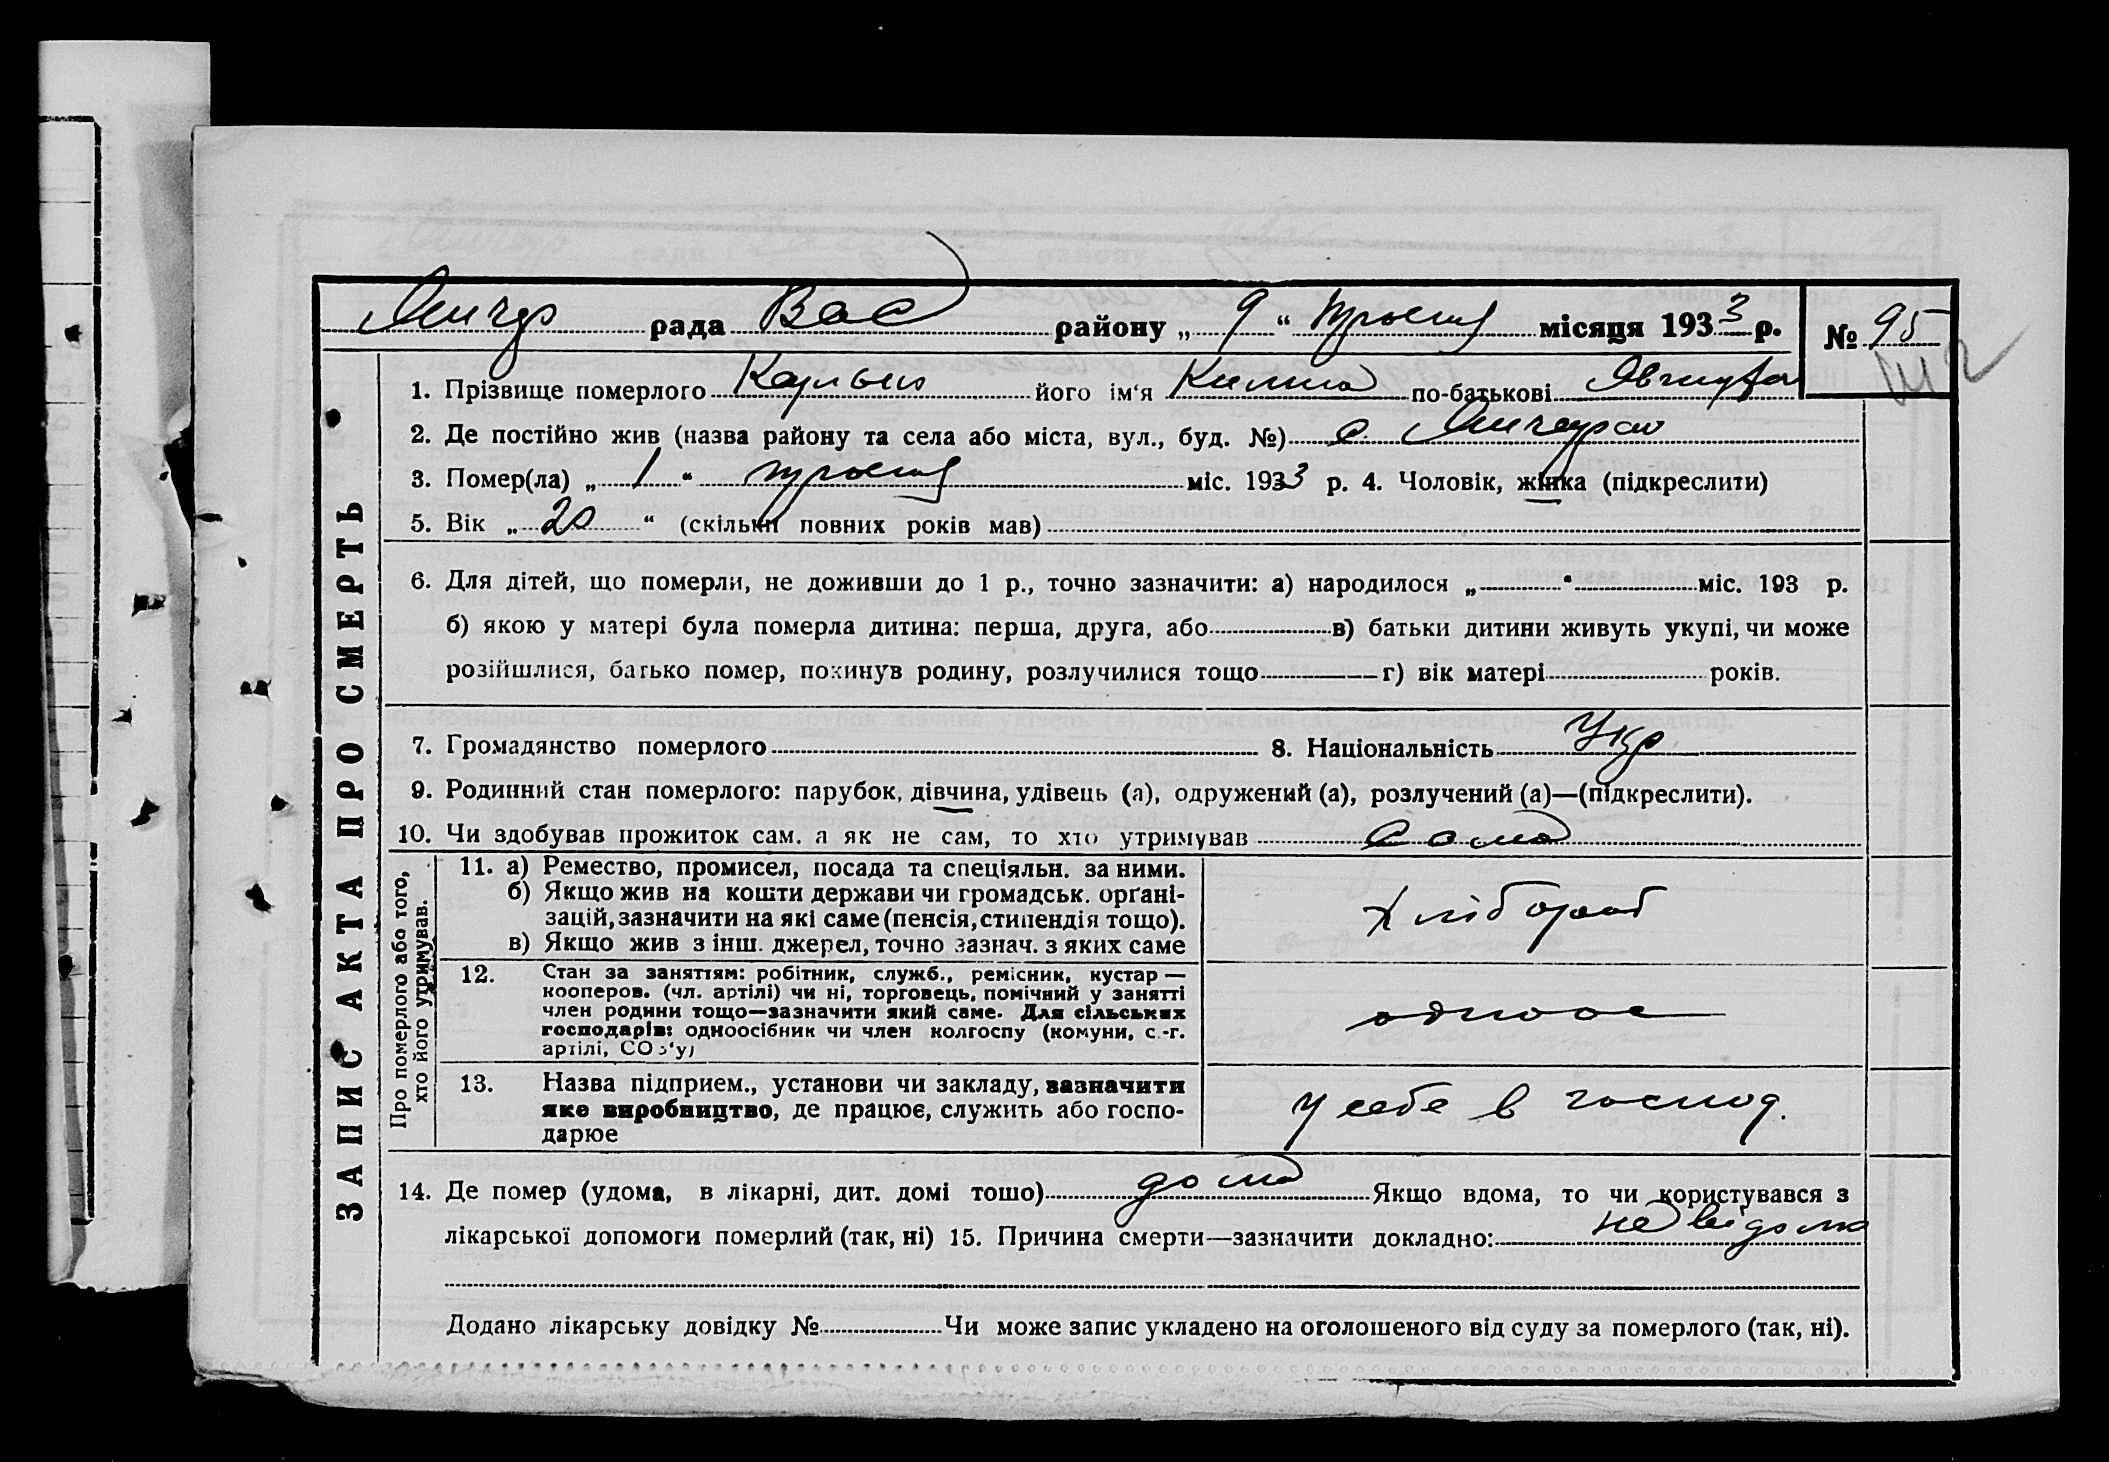 рада Вас району „ 9 “ травня місяця 1933 р. № 95
1. Прізвище померлого його ім'я по-батькові
2. Де постійно жив (назва району та села або міста, вул., буд. №) с.
3. Помер(ла) „ 1 “ травня міс. 1933 р. 4. Чоловік, жінка (підкреслити)
5. Вік „ 20 “ (скільки повних років мав)
6. Для дітей, що померли, не доживши до 1 р., точно зазначити: а) народилося „ “ міс. 193 р.
б) якою у матері була померла дитина: перша, друга, або в) батьки дитини живуть укупі, чи може
розійшлися, батько помер, покинув родину, розлучилися тощо г) вік матері років.
7. Громадянство померлого 8. Національність Укр.
9. Родинний стан померлого: парубок, дівчина, удівець (а), одружений (а), розлучений (а)—(підкреслити).
10. Чи здобував прожиток сам, а як не сам, то хто утримував сама
ЗАПИС АКТА ПРО СМЕРТЬ
Про померлого або того,
хто його утримував.
11. а) Ремество, промисел, посада та спеціяльн. за ними.
б) Якщо жив на кошти держави чи громадськ. орґані-
зацій, зазначити на які саме (пенсія, стипендія тощо).
в) Якщо жив з інш. джерел, точно зазнач. з яких саме
хлібороб
12. Стан за заняттям: робітник, служб., ремісник, кустар —
кооперов. (чл. артілі) чи ні, торговець, помічний у занятті
член родини тощо—зазначити який саме. Для сільських
господарів: одноосібник чи член колгоспу (комуни, с.-г.
артілі, СОЗ'у)
одноос
13. Назва підприєм., установи чи закладу, зазначити
яке виробництво, де працює, служить або госпо-
дарює
у себе в господ.
14. Де помер (удома, в лікарні, дит. домі тошо) дома Якщо вдома, то чи користувався з
лікарської допомоги померлий (так, ні) 15. Причина смерти—зазначити докладно: невідома
Додано лікарську довідку № Чи може запис укладено на оголошеного від суду за померлого (так, ні).